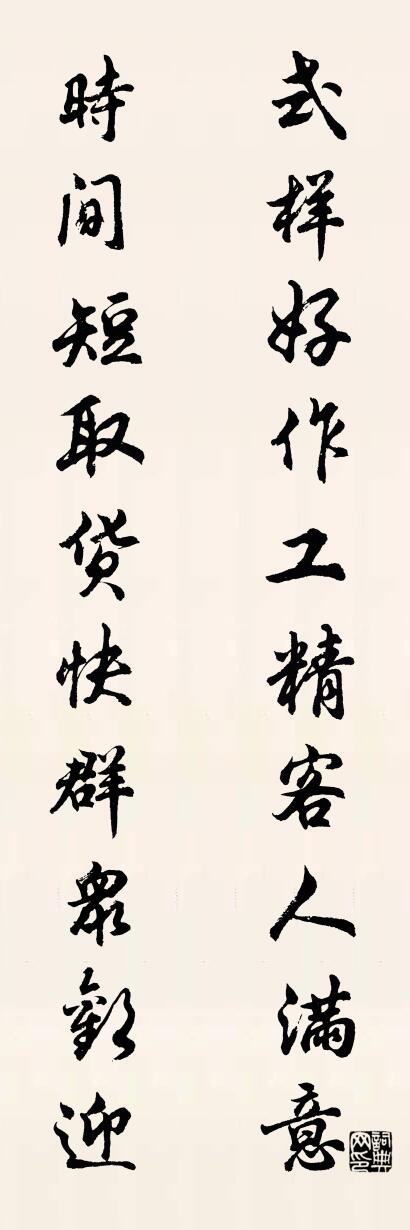 式样好作工精客人满意
時间短取货快群衆歡迎
詞典网印